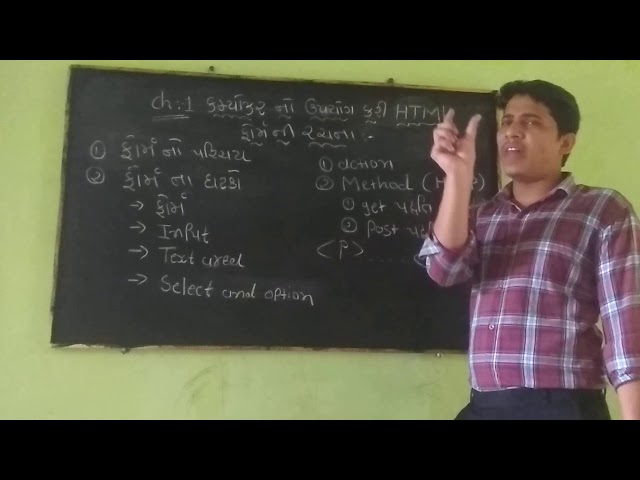 ch:1 કમ્પોઝર નો ઉપયોગ કરી HTML
ફોર્મની રચના :-
① ફોર્મ નો પરિચય
② ફોર્મ ના ઘટકો
→ ફોર્મ
→ Input
→ Text area
→ Select and option
① action
② Method (
① get પદ્ધતિ
② Post
<P> ....